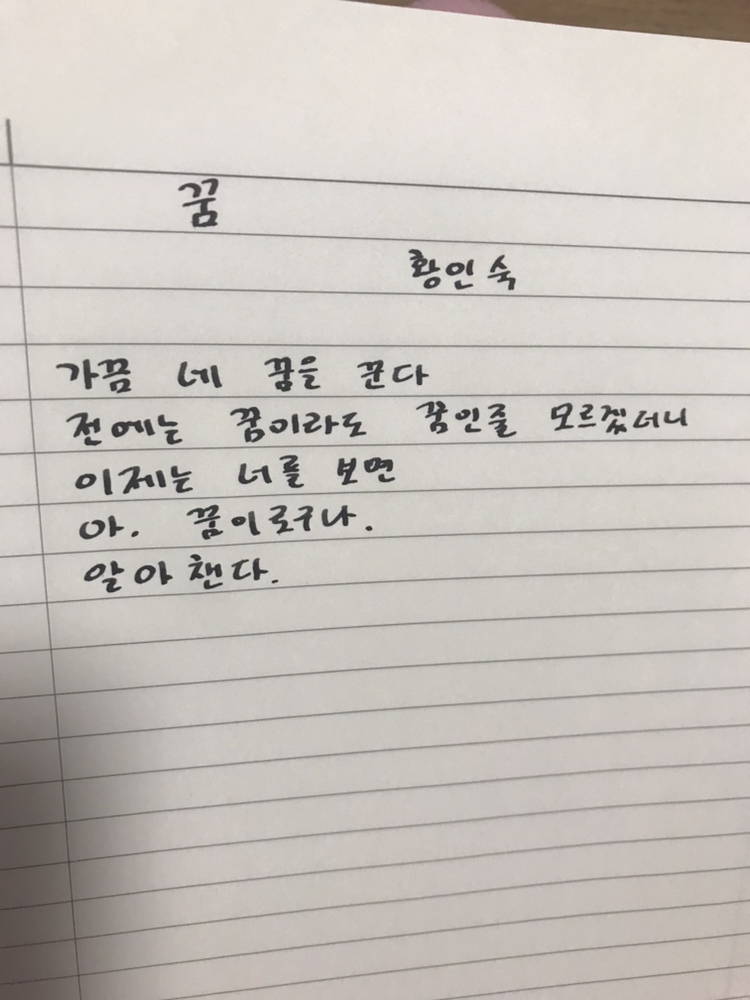 꿈
황인숙
가끔 네 꿈을 꾼다
전에는 꿈이라도 꿈인줄 모르겠더니
이제는 너를 보면
아. 꿈이로구나.
알아챈다.